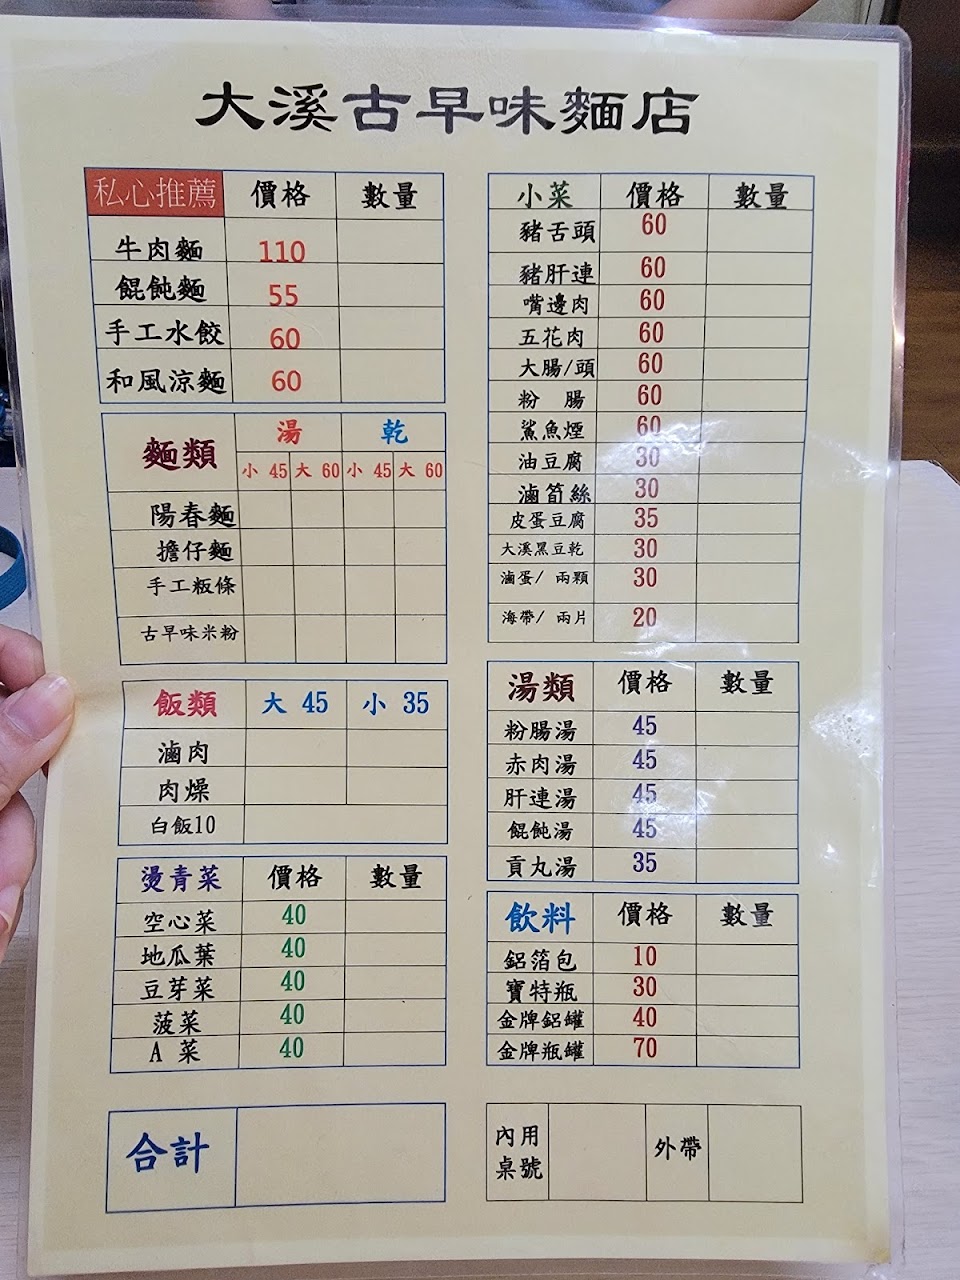 大溪古早味麵店
私心推薦 價格 數量
牛肉麵 110
餛飩麵 55
手工水餃 60
和風涼麵 60
麵類 湯 乾
小 45 大 60 小 45 大 60
陽春麵
擔仔麵
手工粄條
古早味米粉
飯類 大 45 小 35
滷肉
肉燥
白飯10
燙青菜 價格 數量
空心菜 40
地瓜葉 40
豆芽菜 40
菠菜 40
A 菜 40
合計
小菜 價格 數量
豬舌頭 60
豬肝連 60
嘴邊肉 60
五花肉 60
大腸/頭 60
粉 腸 60
鯊魚煙 60
油豆腐 30
滷筍絲 30
皮蛋豆腐 35
大溪黑豆乾 30
滷蛋/ 兩顆 30
海帶/ 兩片 20
湯類 價格 數量
粉腸湯 45
赤肉湯 45
肝連湯 45
餛飩湯 45
貢丸湯 35
飲料 價格 數量
鋁箔包 10
寶特瓶 30
金牌鋁罐 40
金牌瓶罐 70
內用
桌號
外帶